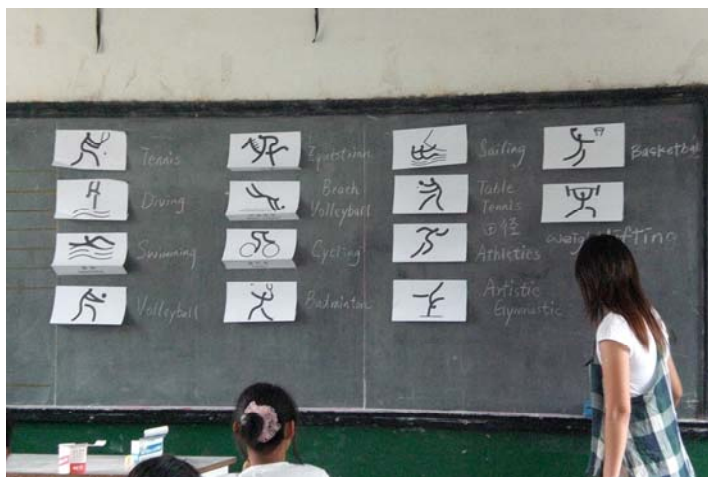 Tennis
Diving
Swimming
Volleyball
Equestrian
Beach
Volleyball
Cycling
Badminton
Sailing
Table
Tennis
田径
Athletics
Artistic
Gymnastic
Basketball
weightlifting